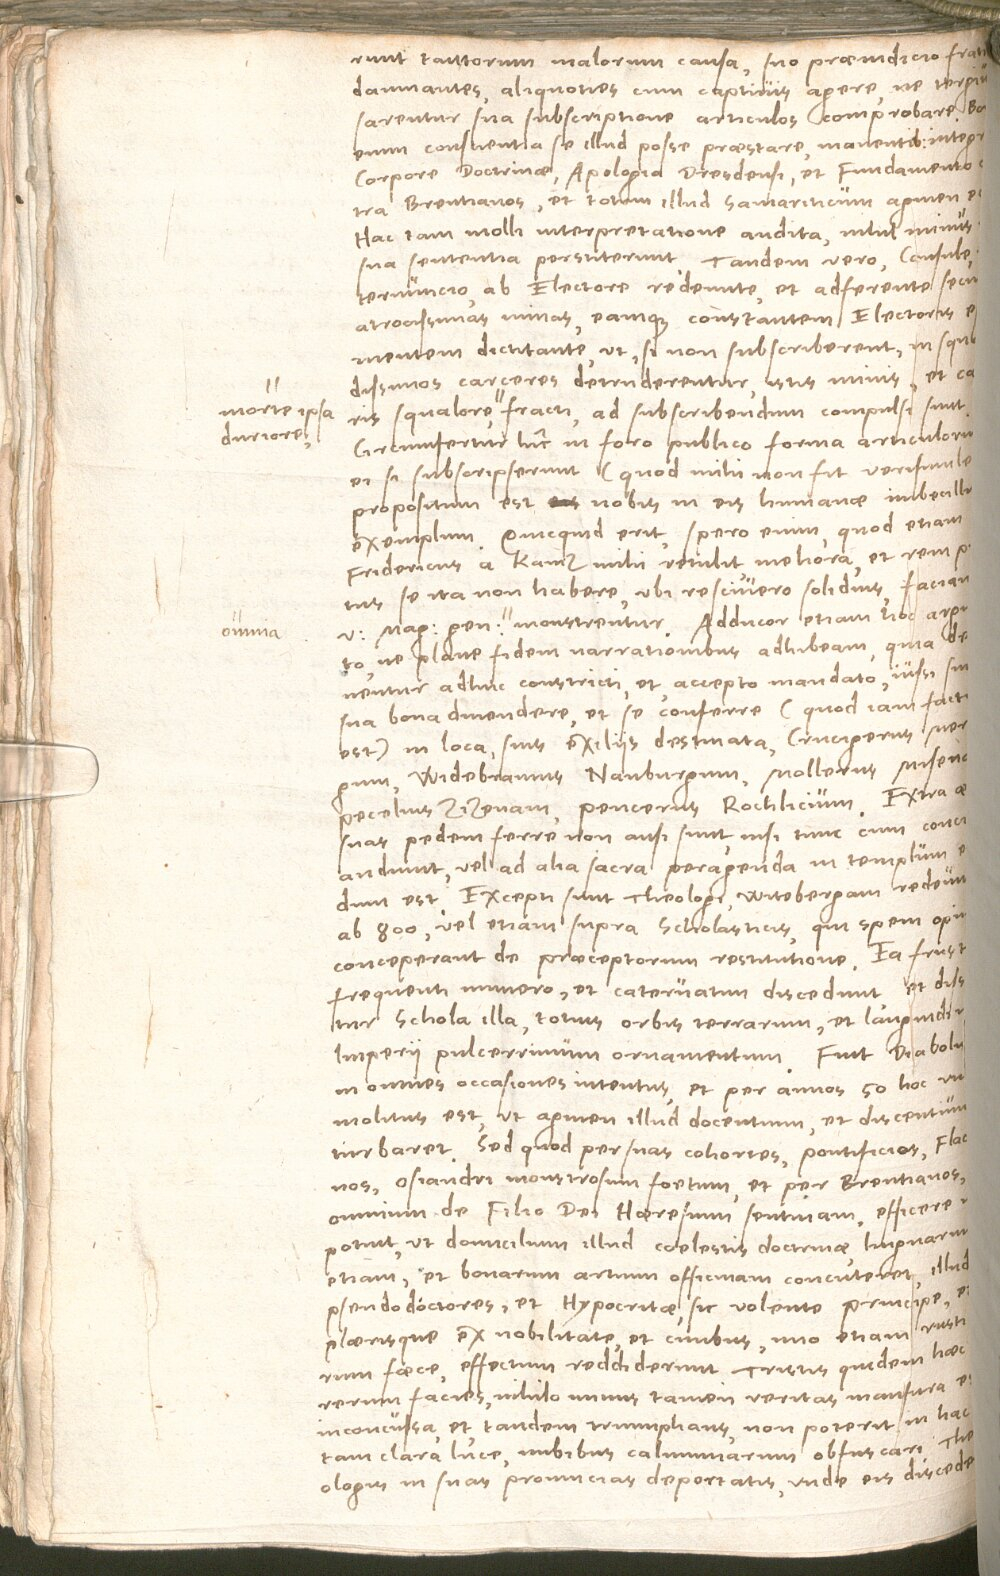 runt tantorum malorum causa, suo præiudicio frat
damnantes, aliquoties cum captiuis agere, ne tergiu
sarentur sua subscriptione articulos comprobare. Bo
enim consuentia se illud posse præstare, manentib: integr
Corpore Doctrinæ, Apologia Dresdensi, et Fundamento
tra Brentianos, et totum illud Samariticum agmen e
Hac tam molli interpretatione audita, nihil minus
sua sententia perstiterunt. Tandem vero, Consule,
ternuncio, ab Electore redeunte, et adferente secu
atrocissimas minas, eamq; constantem Electoris e
mentem dictitante, vt, si non subscriberent, in squa
dissimos carceres detruderentur, istis minis, et ca
morte ipsa
duriore,
ris squalore," fracti, ad subscribendum compulsi sunt.
Circumfertur huc in foro publico forma articuloru
ei si subscripserunt (quod mihi non fit verisimile
propositum est nobis in eis humanæ imbecilli
exemplum. Quicquid erit, spero enim, quod etiam
Fridericus a Kanitz mihi retulit, meliora, et rem p
tus se ita non habere, vbi resciuero solidius, faciam
omnia
v: Mag: gen: " monstrentur. Adducor etiam hoc argu
to, ne plane fidem narrationibus adhibeam, quia de
nentur adhuc constricti, et, accepto mandato, iussi sun
sua bona diuendere, et se conferre (quod iam fact
est) in loca, suis exiliis destinata, Crucigerus Mer
gum, Widebramus Nauburgum, Mollerus Misenā
pezelius Zizenam, peucerus Rochlicium. Extra æ
suas pedem ferre non ausi sunt, nisi tunc cum conci
audiunt, vel ad alia sacra peragenda in templum e
dum est. Excepti sunt Theologi, Witebergam redeunt
ab 800, vel etiam supra Scholasticis, qui spem opi
conceperant de præceptorum restitutione. Ea frust
frequenti numero, et cateruatim discedunt et diss
tur Schola illa, totius orbis terrarum, et languidi
Imperii pulcerrimum ornamentum. Fuit Diabolu
in omnes occasiones intentus, et per annos 50 hoc un
molitus est, vt agmen illud docentium, et discentium
turbaret. Sed quod per suas cohortes, pontificios, Flac
nos, Osiandri monstrosum foetum, et per Brentianos,
omnium de Filio Dei Hæresium sentinam, efficere
potuit, vt domicilium illud coelestis doctrinæ linguarum
etiam, et bonarum artium officinam concuteret, illud
pseudodoctores, et Hypocritæ, sic volente principe, e
plærisque ex nobilitate, et ciuibus, imo etiam rusti
rum fæce, effectum reddiderunt. Tristis quidem hæc
rerum facies, nihilo minus tamen veritas mansura e
inconcussa, et tandem triumphans, non poterit in hac
tam clara luce, nubibus calumniarum obfuscari. The
ologis in suas prouincias deportatis, vnde eis discede